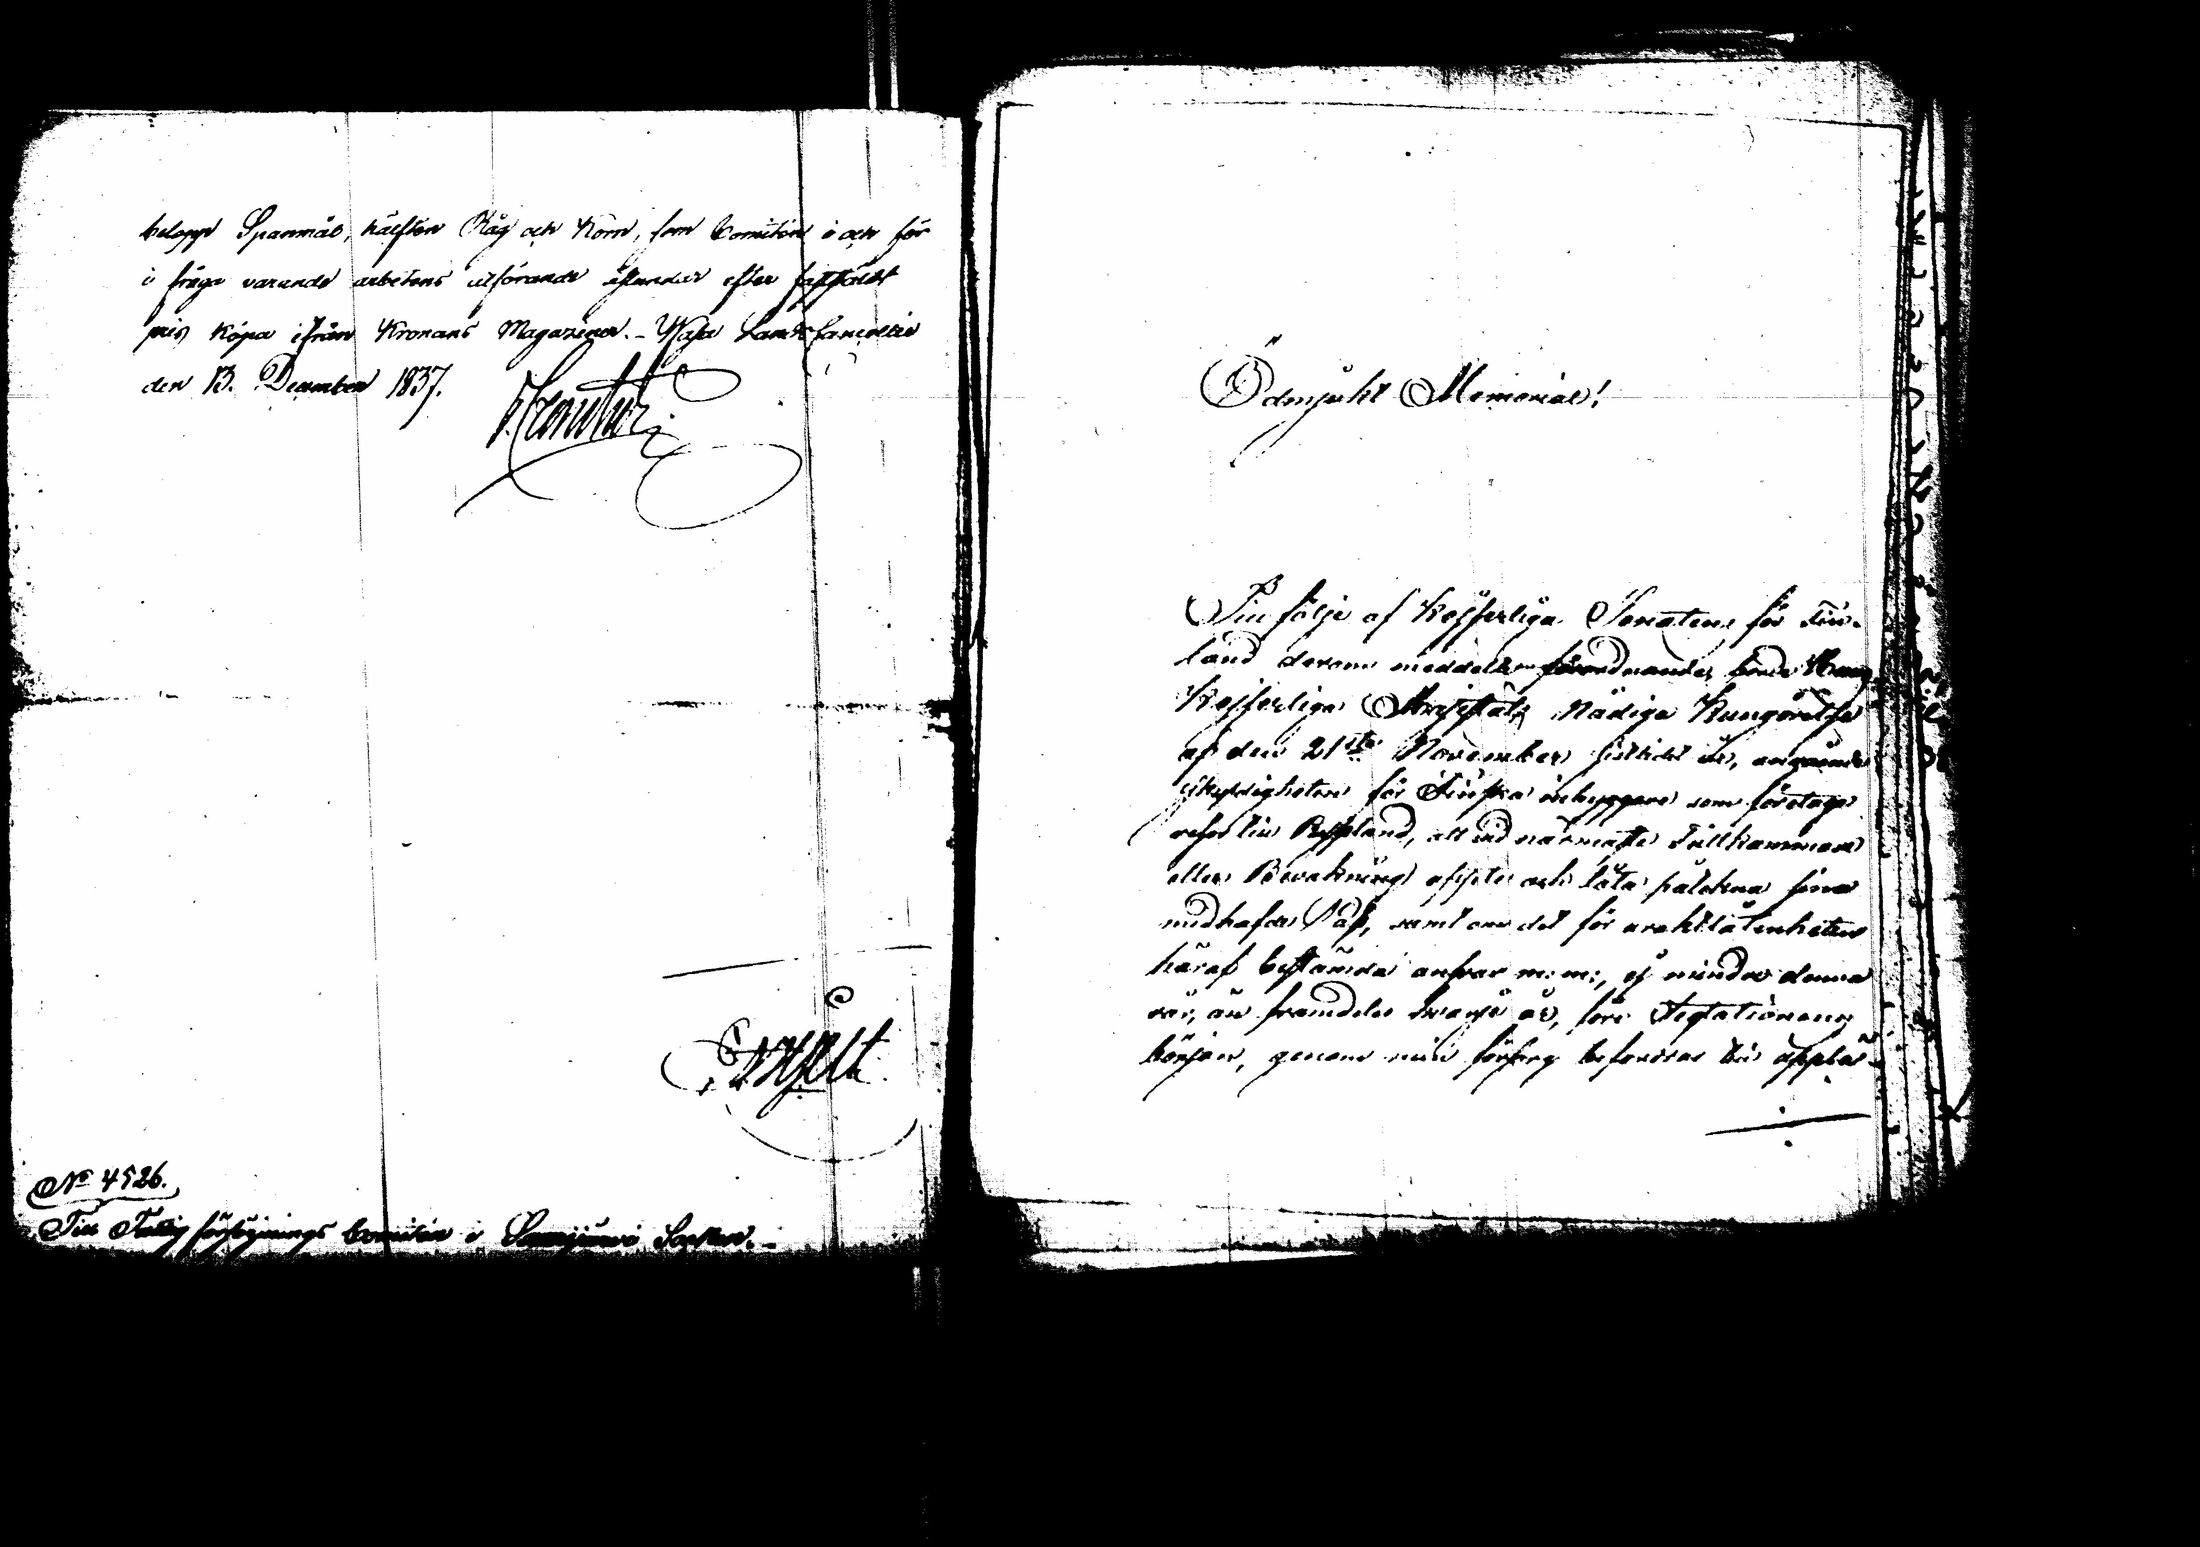 belopp Spanmål, hälften Råg och Korn, som Comitén i och för
i fråga varande arbetens utförande åstundar efter fastställt
pris köpa ifrån Kronans Magaziner. _ Wasa Lands Cancellie
den 13. December 1837.
No 4526.
Till Fattig försörjnings Comitén i Socken. _
Ödmjukt Memorial!
Till följe af Kejserliga Senatens för Fin-
land derom meddelta förordnande, borde Hans
Kejserliga Majestäts Nådiga Kungörelse
af den 21sta November sistledet år, angående
skyldigheten för Finska inbyggare som företaga
resor till Ryssland, att vid närmaste Tullkammare
eller Bevakning uppte och låta påtekna sina
medhafda Pass, samt om det för uraktlåtenheten
häraf bestämda ansvar m: m:, ej mindre denna
vår, än framdeles hvarje år, före Seglationens
början, genom min försorg befordras till upplä-